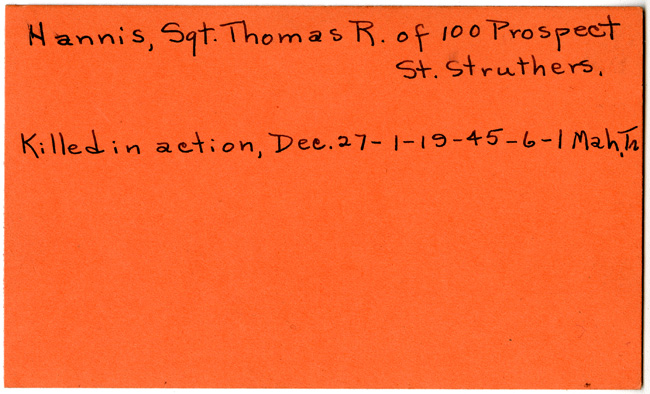 Hannis, Sgt. Thomas R. of 100 Prospect
St. Struthers.
Killed in action, Dec. 27-1-19-45-6-1 Mah. Tr